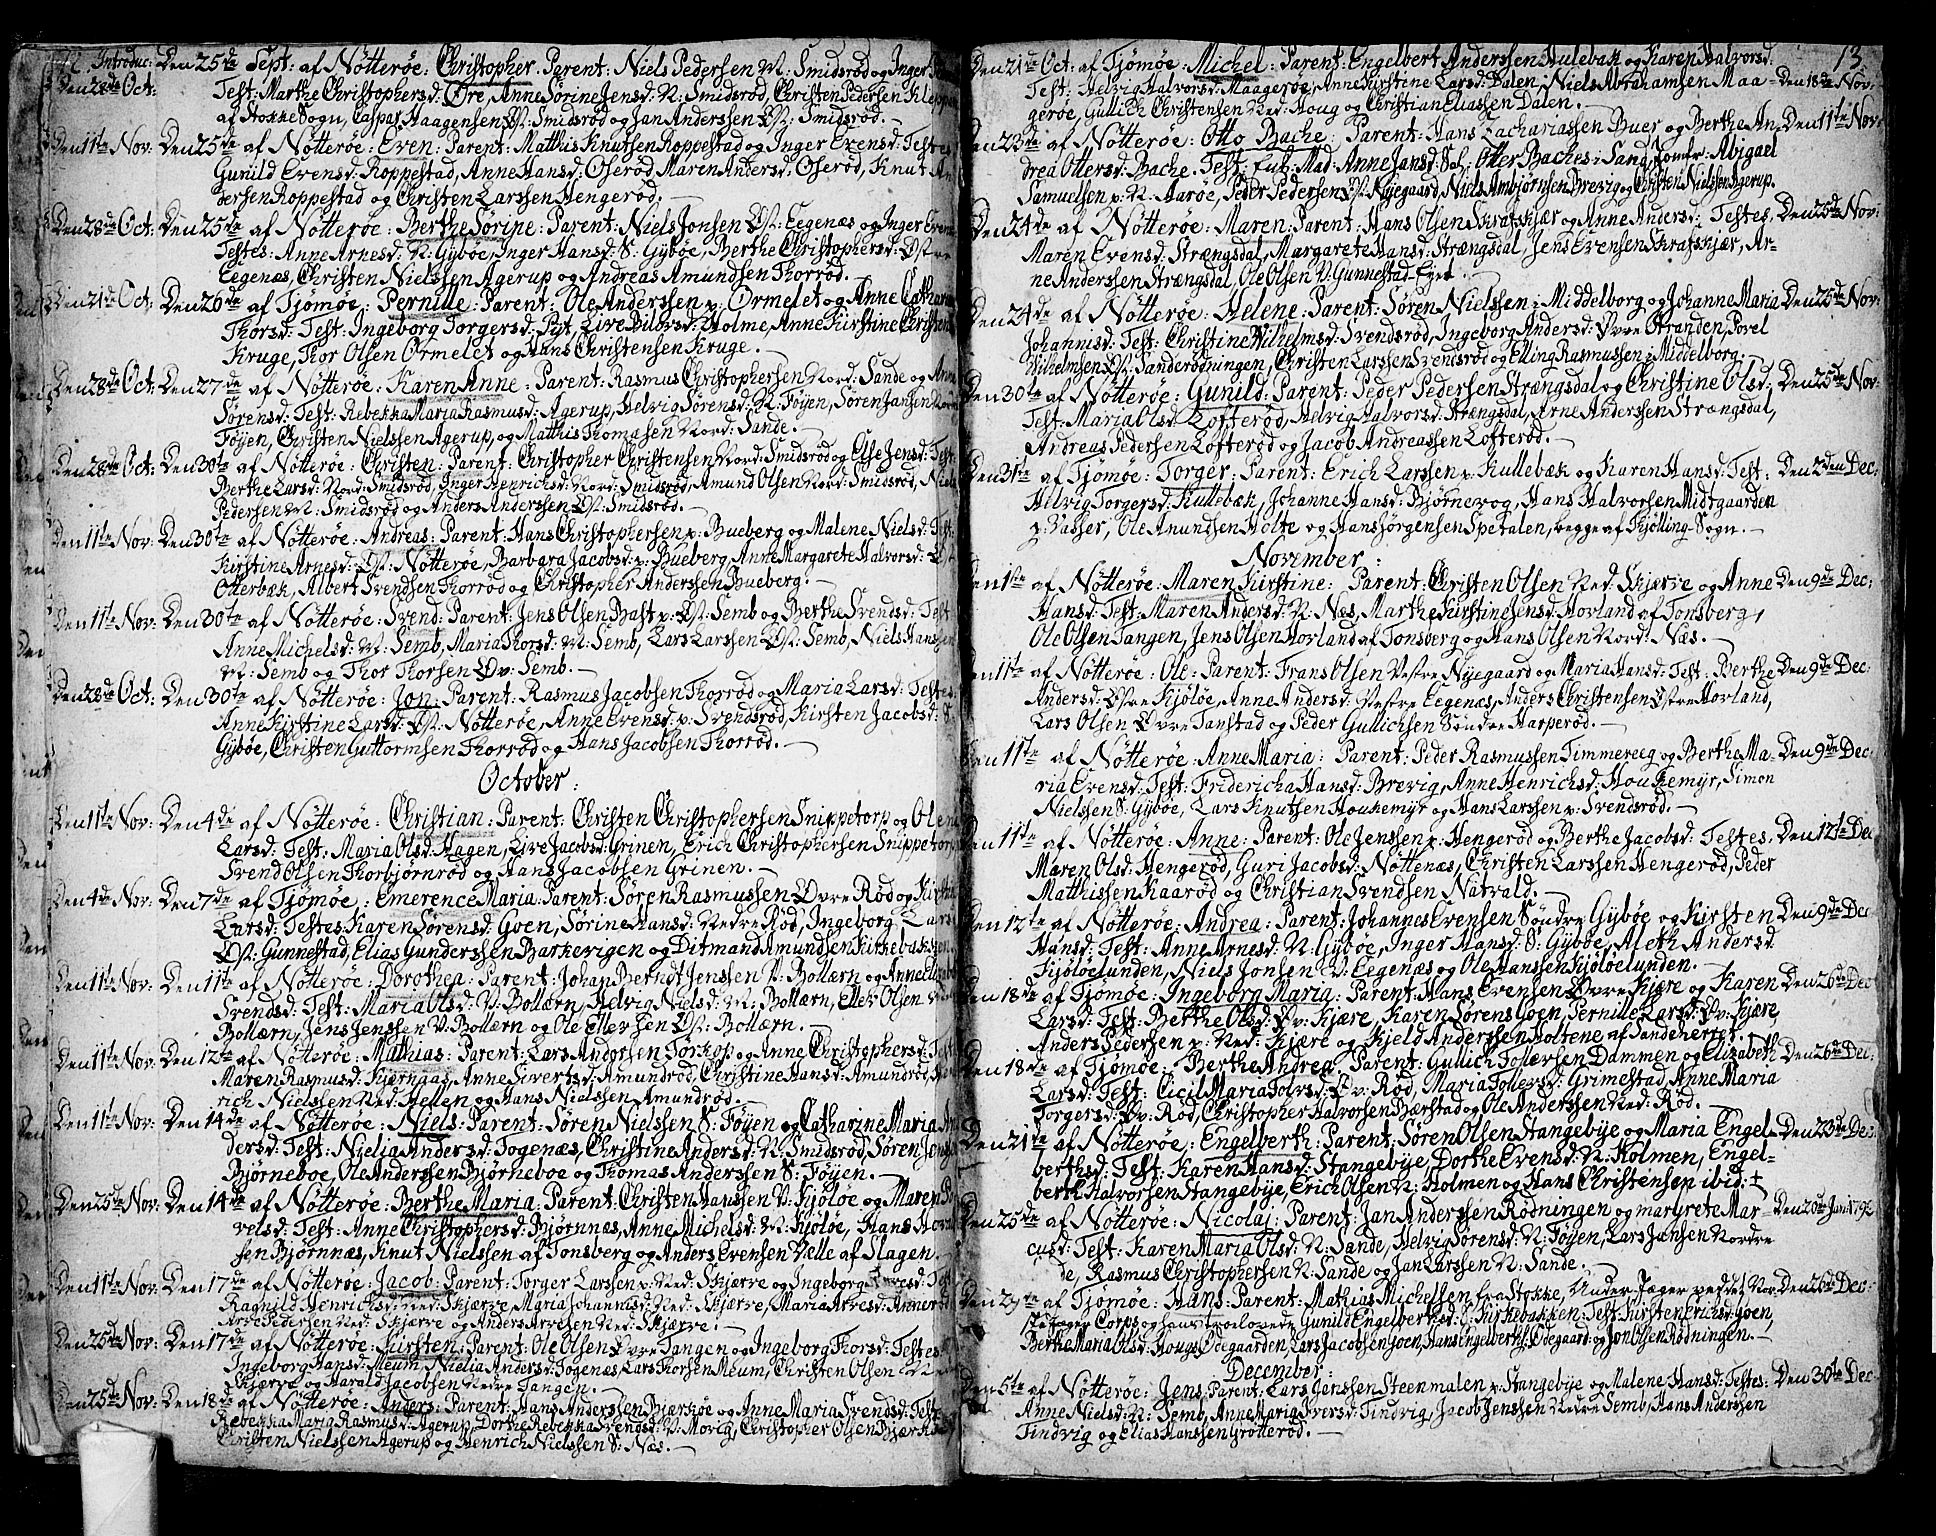 12 Introduc: Den 25de Sept: af Nötteröe: Christopher: Parent: Niels Pedersen N: Smidsrød og Inger
Den 28de Oct: Test: Marthe Christophersd: Øre, Anne Sørine Jensd: N: Smidsrød, Christen Pedersen Kleppan
af Stokke Sogn, Caspar Haagensen Øst: Smidsrød og Jan Anderssen Øst: Smidsrød.
Den 11te Nov: Den 25de af Nötteröe: Even: Parent: Matthis Knutsen Roppestad og Inger Evensd: Testes
Gunild Evensd: Roppestad, Anne Hansd: Oserød, Maren Andersd: Oserød, Knut An
dersen Roppestad og Christen Larssen Hengerød.
Den 28de Oct: Den 25de af Nötteröe: Berthe Sørine: Parent: Niels Jonsen Øst: Eegenæs og Inger
Testes: Anne Arnesd: N: Gybøe, Inger Hansd: S: Gybøe, Berthe Christophersd: Østre
Eegenæs, Christen Nielssen Agerup og Andreas Amundsen Thorrød.
Den 21de Oct: Den 26de af Tjömöe: Pernille: Parent: Ole Anderssen p: Ormelet og Anne Cathari
Thorsd: Test: Ingeborg Torgersd: Pyt, Live Bilovsd: Holme, Anne Kirstine Christens
Kruge, Thor Olsen Ormelet og Hans Christensen Kruge.
Den 28de Oct: Den 27de af Nötteröe: Karen Anne: Parent: Rasmus Christophersen Nord: Sande og Anne
Sørensd: Test: Rebekka Maria Rasmusd: Agerup, Helvig Sørensd: N: Føyen, Søren Jansen
Føyen, Christen Nielssen Agerup, og Matthis Thomasen Nord: Sande.
Den 28de Oct: Den 30te af Nötteröe: Christen: Parent: Christopher Christensen Nord: Smidsrød og Else Jensd: Test:
Berthe Larsd: Nord: Smidsrød, Inger Henrichsd: Nord: Smidsrød, Amund Olsen Nord: Smidsrød, Niels
Pedersen N: Smidsrød og Anders Anderssen Øst: Smidsrød.
Den 11te Nov: Den 30te af Nötteröe: Andreas: Parent: Hans Christophersen p: Bueberg og Malene Nielsd: Test:
Kirstine Arnesd: Øst: Nötteröe, Barbara Jacobsd: p: Bueberg, Anne Margarete Halvorsd: Øst
Otterbæk, Albert Svendsen Thorrød og Christopher Anderssen Bueberg.
Den 11te Nov: Den 30te af Nötteröe: Svend: Parent: Jens Olsen Bast p: Øst: Semb og Berthe Svendsd: Test:
Anne Michelsd: N: Semb, Maria Thorsd: N: Semb, Lars Larssen Øst: Semb, Niels Hanssen
N: Semb og Thor Thorsen Øv: Semb.
Den 28de Oct: Den 30te af Nötteröe: Jon: Parent: Rasmus Jacobsen Thorrød og Maria Larsd: Testes
Anne Kirstine Larsd: Øst: Nötteröe, Anne Evensd: p: Svendsrød, Kirsten Jacobsd: S:
Gybøe, Christen Guttormsen Thorrød og Hans Jacobsen Thorrød.
October:
Den 11te Nov: Den 4de af Nötteröe: Christian: Parent: Christen Christophersen Snippetorp og Olena
Larsd: Test: Maria Olsd: Hagen, Live Jacobsd: Grinen, Erich Christophersen Snippetorp
Svend Olsen Thorbjørnrød og Hans Jacobsen Grinen.
Den 4de Nov: Den 7de af Tjömöe: Emerence Maria: Parent: Søren Rasmussen Øvre Rød og Kirsten
Larsd: Testes Karen Sørensd: Goen, Sørine Hansd: Nedre Rød, Ingeborg Larsd
Øst: Gunnestad, Elias Gunderssen Barkevigen og Ditmand Amundsen Kirkebakken.
Den 11te Nov: Den 11te af Nötteröe: Dorothea: Parent: Johan Berndt Jenssen V: Bollærn og Anne Elisabet
Svendsd: Test: Maria Olsd: V: Bollærn, Helvig Nielsd: N: Bollærn, Ellev Olsen
Bollærn, Jens Jenssen V: Bollærn og Ole Ellevsen Øst: Bollærn.
Den 11te Nov: Den 12te af Nötteröe: Mathias: Parent: Lars Anderssen Tørkop og Anne Christophersd: Test
Maren Rasmusd: Kjernaas, Anne Sivertsd: Amundrød, Christine Hansd: Amundrød, Hen
rich Nielssen Ned: Hellen og Hans Nielssen Amundrød.
Den 11te Nov: Den 14de af Nötteröe: Niels: Parent: Søren Nielssen S: Føyen og Catharine Maria An
dersd: Test: Nielia Andersd: Togenæs, Christine Andersd: N: Smidsrød, Søren Jensen
Bjørneboe, Ole Anderssen Bjørneboe og Thomas Anderssen S: Føyen.
Den 25de Nov: Den 14de af Nötteröe: Berthe Maria: Parent: Christen Hanssen V: Kjøløe og Maren Po
velsd: Test: Anne Christophersd: Bjørnnæs, Anne Michelsd: N: Kjøløe, Hans
sen Bjørnnæs, Knut Nielssen af Tonsberg og Anders Evensen Vælle af Slagen.
Den 11te Nov: Den 17de af Nötteröe: Jacob: Parent: Torger Larssen p: Ned: Skjærre og Ingeborg Arvesd: Test
Ragnild Henrichsd: Ned: Skjærre, Maria Johannisd: Ned: Skjærre, Maria Arvesd: Annerød
Arve Pedersen Ned: Skjærre og Anders Arvesen Ned: Skjærre.
Den 25de Nov: Den 17de af Nötteröe: Kirsten: Parent: Ole Olsen Øvre Tangen og Ingeborg Thorsd: Testes
Ingeborg Hansd: Meum, Nielia Andersd: Togenæs, Lars Thorsen Meum, Christen Olsen
Skjærre og Harald Jacobsen Nedre Tangen.
Den 25de Nov: Den 18de af Nötteröe: Anders: Parent: Hans Anderssen Bjerkøe og Anne Maria Svendsd: Test:
Rebekka Maria Rasmusd: Agerup, Dorthe Rebekka Svendsd: V: Morig, Christopher Olsen Bjerkøe
Christen Nielssen Agerup og Henrich Nielssen S: Næs.
13
Den 21de Oct: af Tjömöe: Michel: Parent: Engelbert Anderssen Hulebak og Karen Halvorsd.
Test: Helvig Halvorsd: Maagerøe, Anne Kirstine Larsd: Dalen, Niels Abrahamsen Maa- Den 18de Nov:
gerøe, Gullich Christensen Ned: Houg og Christian Eliassen Dalen.
Den 23de af Nötteröe: Otto Bache: Parent: Hans Zachariassen Buer og Berthe An- Den 11te Nov:
drea Ottersd: Bache. Test: Enk: Mad: Anne Jansd: Sal: Otter Baches: Sand, Jomfr: Abigael
Samuelsen p: N: Aarøe, Peder Pedersen Øst: Nyegaard, Niels Ambjørnsen Brevig og Christen Nielssen Agerup.
Den 24de af Nötteröe: Maren: Parent: Hans Olsen Skrafskjær og Anne Andersd: Testes: Den 25de Nov:
Maren Evensd: Strængsdal, Margarete Hansd: Strængsdal, Jens Evensen Skrafskjær, Ar-
ne Anderssen Strængsdal, Ole Olsen V: Gunnestad-Eyet.
Den 24de af Nötteröe: Helene: Parent: Søren Nielssen p: Middelborg og Johanne Maria Den 25de Nov:
Johannisd: Test: Christine Wilhelmsd: Svendsrød, Ingeborg Andersd: Øvre Stranden, Povel
Wilhelmsen Øst: Sanderødningen, Christen Larssen Svendsrød og Elling Rasmussen p: Middelborg.
Den 30te af Nötteröe: Gunild: Parent: Peder Pedersen Strængsdal og Christine Olsd: Den 25de Nov:
Test: Maria Olsd: Lofterød, Helvig Halvorsd: Strængsdal, Arne Anderssen Strængsdal,
Andreas Pedersen Lofterød og Jacob Andreassen Lofterød.
Den 31te af Tjömöe: Torger: Parent: Erich Larssen p: Kullebæk og Karen Hansd: Test: Den 2den Dec:
Helvig Torgersd: Kullebæk, Johanne Hansd: Bjørnevog, Hans Halvorsen Midtgaarden
p: Vasser, Ole Anundsen Holte og Hans Jörgensen Spetalen, begge af Kjølling Sogn.
November:
Den 1ste af Nötteröe: Maren Kirstine: Parent: Christen Olsen Ned: Skjærre og Anne Den 9de Dec:
Hansd: Test: Maren Andersd: N: Næs, Marthe Kirstine Jensd: Hovland af Tonsberg,
Ole Olsen Tangen, Jens Olsen Hovland af Tonsberg og Hans Olsen Nord: Næs.
Den 11te af Nötteröe: Ole: Parent: Frans Olsen Vestre Nyegaard og Maria Hansd: Test: Berthe Den 9de Dec:
Andersd: Østre Kjøløe, Anne Andersd: Vestre Eegenæs, Anders Christensen Østre Hovland,
Lars Olsen Øvre Tanstad og Peder Gullichsen Søndre Harperød.
Den 11te af Nötteröe: Anne Maria: Parent: Peder Rasmussen Timmereeg og Berthe Ma- Den 9de Dec:
ria Evensd: Test: Fridericha Hansd: Brevig, Anne Henrichsd: Houkemyr, Simon
Nielssen S: Gybøe, Lars Knutsen Houkemyr og Hans Larssen p: Svendsrød.
Den 11te af Nötteröe: Anne: Parent: Ole Jenssen p: Hengerød og Berthe Jacobsd: Testes: Den 12te Dec
Maren Olsd: Hengerød, Guri Jacobsd: Nøttenæs, Christen Larssen Hengerød, Peder
Matthissen Kaarød og Christian Svendsen Natvald.
Den 12te af Nötteröe: Andrea: Parent: Johannes Evensen Søndre Gybøe og Kirsten Den 9de Dec
Hansd: Test: Anne Arnesd: N: Gybøe, Inger Hansd: S: Gybøe, Aleth Andersd
Kjøløelunden, Niels Jonsen V: Eegenæs og Ole Hanssen Kjøløelunden.
Den 18de af Tjömöe: Ingeborg Maria: Parent: Hans Evensen Øvre Kjære og Karen Den 26de Dec
Larsd: Test: Berthe Olsd: Øv: Kjære, Karen Sørensd Goen, Pernille Larsd: Øv: Kjære,
Anders Pedersen p: Ned: Kjære og Kjeld Anderssen Holtene af Sandeherret.
Den 18de af Tjömöe: Berthe Andrea: Parent: Gullich Tollersen Dammen og Elizabeth Den 26de Dec:
Larsd: Test: Cicil Maria Tolvsd: Øv: Rød, Maria Tollersd: Grimestad, Anne Maria
Torgersd: Øv: Rød, Christopher Halvorsen Bjærstad og Ole Anderssen Ned: Rød.
Den 21te af Nötteröe: Engelberth: Parent: Søren Olsen Stangebye og Maria Engel- Den 23de Dec:
berthsd: Test: Karen Hansd: Stangebye, Dorthe Evensd: N: Holmen, Engel-
berth Halvorsen Stangebye, Erich Olsen N: Holmen og Hans Christensen ibid:
Den 25de af Nötteröe: Nicolaj: Parent: Jan Anderssen Rødningen og margrete Mar- Den 20de Jan: 1792
cusd: Test: Karen Maria Olsd: N: Sande, Helvig Sørensd: N: Føyen, Lars Jansen Nordre
de, Rasmus Christophersen N: Sande og Jan Larssen N: Sande.
Den 29de af Tjömöe: Hans: Parent: Mathias Michelsen fra Stokke, Under-Jæger ved det Nor- Den 26de Dec:
Jæger Corps og hans trolovede Gunild Engelbertsd: Kirkebakken. Test: Kirsten Erichsd: Goen,
Berthe Maria Olsd: Hougs Ødegaarden, Lars Jacobsen Goen, Hans Ingelberths: Ødegaard og Jon Olsen Rødningen.
December:
Den 5te af Nötteröe: Jens: Parent: Lars Jenssen Steenmalen p: Stangebye og Malene Hansd: Testes: Den 30te Dec:
Anne Nielsd: N: Semb, Anne Maria Iversd: Tindvig, Jacob Jenssen Nedre Semb, Hans Anderssen
Tindvig og Elias Hanssen Grøtterød.